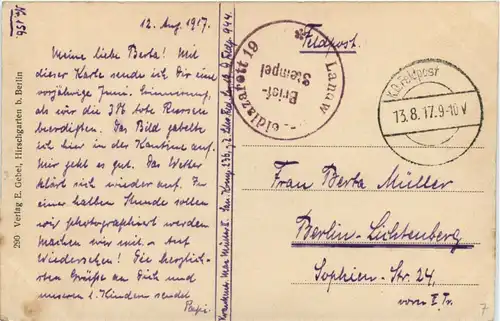 No. 156.
290 Verlag E. Gebel, Hirschgarten b. Berlin
12. Aug. 1917.
Meine liebe Berta! Mit
dieser Karte sende ich Dir eine
vorjährige Juni-Erinnerung,
als wir die 316 tote Russen
beerdigten. Das Bild gabelte
ich hier in der Kantine auf.
Mir geht es gut. Das Wetter
klärt sich wieder auf. In
einer halben Stunde sollen
wir photographiert werden
Machen wir mit. - Auf
Wiedersehen! Die herzlich-
sten Grüße an Dich und
unseren l. Kindern sendet
Papi.
Max Müller
Feldpost.
Landw.-Feldlazarett 19
Brief-
Stempel
K.D. Feldpost
13.8.17.9-10V
Frau Berta Müller
Berlin-Lichtenberg
Sophien-Str. 24,
vorn I. Tr.
7